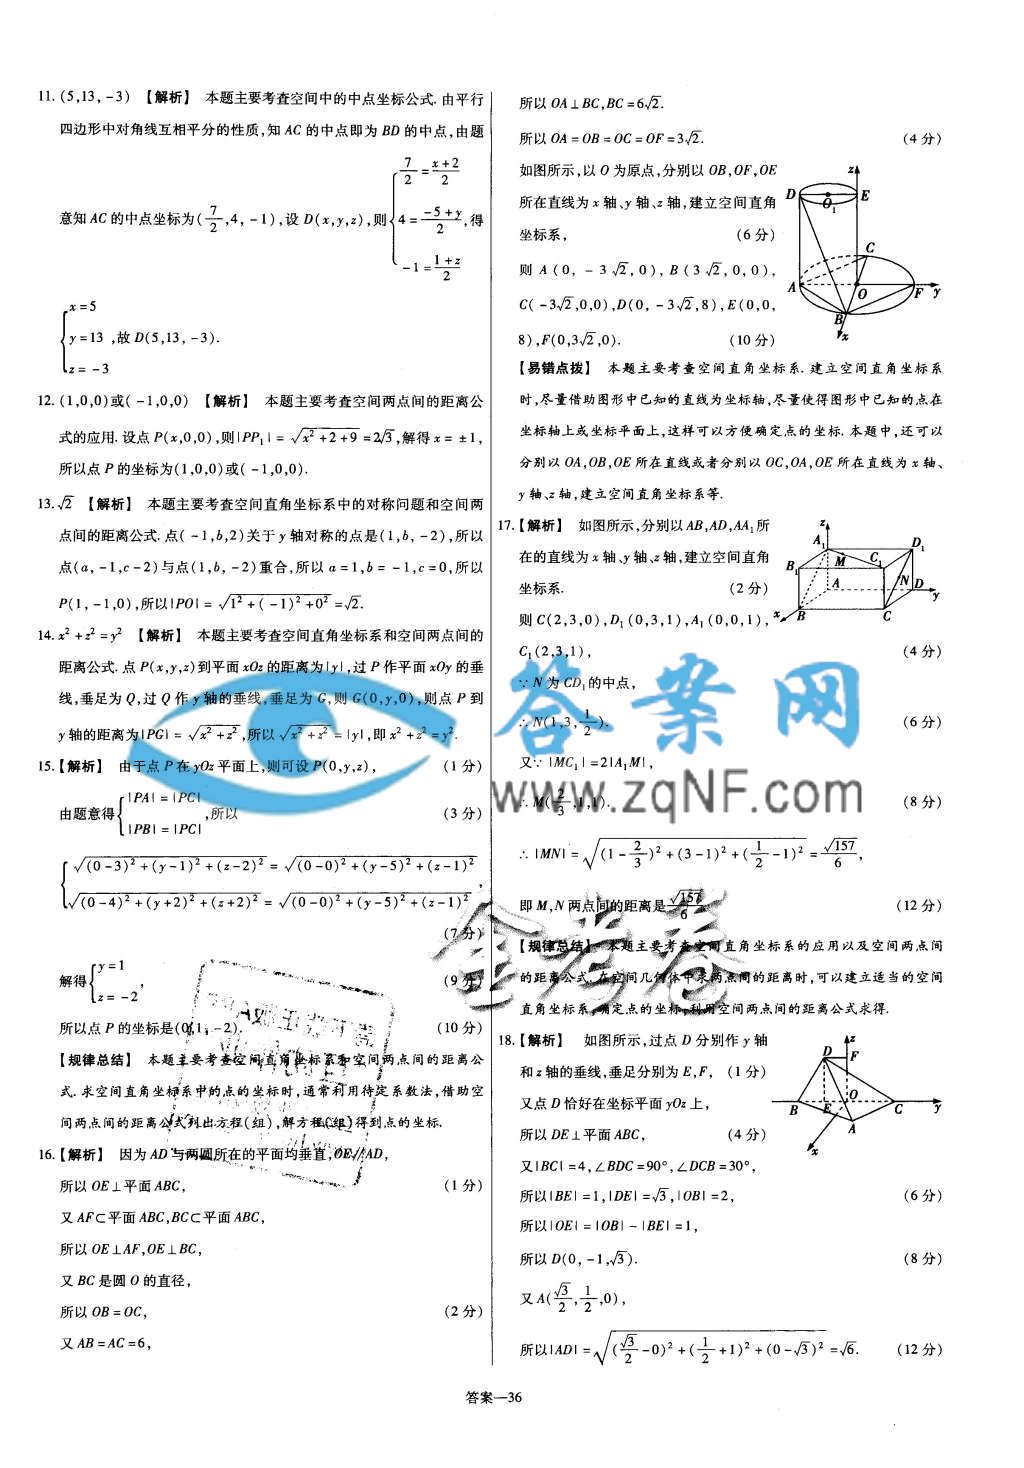 11. (5,13,-3) 【解析】 本题主要考查空间中的中点坐标公式.由平行
四边形中对角线互相平分的性质,知 AC 的中点即为 BD 的中点,由题
意知 AC 的中点坐标为(7/2,4,-1),设 D(x,y,z),则{7/2=(x+2)/2, 4=(-5+y)/2, -1=(1+z)/2 ,得
{x=5, y=13, z=-3 ,故 D(5,13,-3).
12. (1,0,0)或(-1,0,0) 【解析】 本题主要考查空间两点间的距离公
式的应用.设点 P(x,0,0),则|PP₁|=√(x²+2+9)=2√3,解得 x=±1,
所以点 P 的坐标为(1,0,0)或(-1,0,0).
13. √2 【解析】 本题主要考查空间直角坐标系中的对称问题和空间两
点间的距离公式.点(-1,b,2)关于 y 轴对称的点是(1,b,-2),所以
点(a,-1,c-2)与点(1,b,-2)重合,所以 a=1,b=-1,c=0,所以
P(1,-1,0),所以|PO|=√(1²+(-1)²+0²)=√2.
14. x²+z²=y² 【解析】 本题主要考查空间直角坐标系和空间两点间的
距离公式.点 P(x,y,z)到平面 xOz 的距离为|y|,过 P 作平面 xOy 的垂
线,垂足为 Q,过 Q 作 y 轴的垂线,垂足为 G,则 G(0,y,0),则点 P 到
y 轴的距离为|PG|=√(x²+z²),所以√(x²+z²)=|y|,即 x²+z²=y².
15.【解析】 由于点 P 在 yOz 平面上,则可设 P(0,y,z), (1 分)
由题意得{|PA|=|PC|, |PB|=|PC| ,所以 (3 分)
{√((0-3)²+(y-1)²+(z-2)²)=√((0-0)²+(y-5)²+(z-1)²)
√((0-4)²+(y+2)²+(z+2)²)=√((0-0)²+(y-5)²+(z-1)²) ,
(7 分)
解得{y=1, z=-2 , (9 分)
所以点 P 的坐标是(0,1,-2). (10 分)
【规律总结】 本题主要考查空间直角坐标系和空间两点间的距离公
式.求空间直角坐标系中的点的坐标时,通常利用待定系数法,借助空
间两点间的距离公式列出方程(组),解方程(组)得到点的坐标.
16.【解析】 因为 AD 与两圆所在的平面均垂直,OE∥AD,
所以 OE⊥平面 ABC, (1 分)
又 AF⊂平面 ABC,BC⊂平面 ABC,
所以 OE⊥AF,OE⊥BC,
又 BC 是圆 O 的直径,
所以 OB=OC, (2 分)
又 AB=AC=6,
所以 OA⊥BC,BC=6√2.
所以 OA=OB=OC=OF=3√2. (4 分)
如图所示,以 O 为原点,分别以 OB,OF,OE
所在直线为 x 轴、y 轴、z 轴,建立空间直角
坐标系, (6 分)
则 A(0,-3√2,0),B(3√2,0,0),
C(-3√2,0,0),D(0,-3√2,8),E(0,0,
8),F(0,3√2,0). (10 分)
z D O₁ E C A O F y B x
【易错点拨】 本题主要考查空间直角坐标系.建立空间直角坐标系
时,尽量借助图形中已知的直线为坐标轴,尽量使得图形中已知的点在
坐标轴上或坐标平面上,这样可以方便确定点的坐标.本题中,还可以
分别以 OA,OB,OE 所在直线或者分别以 OC,OA,OE 所在直线为 x 轴、
y 轴、z 轴,建立空间直角坐标系等.
17.【解析】 如图所示,分别以 AB,AD,AA₁所
在的直线为 x 轴、y 轴、z 轴,建立空间直角
坐标系. (2 分)
则 C(2,3,0),D₁(0,3,1),A₁(0,0,1),
z A₁ D₁ B₁ M C₁ A N D y x B C
C₁(2,3,1), (4 分)
∵N 为 CD₁的中点,
∴N(1,3,1/2). (6 分)
又∵|MC₁|=2|A₁M|,
∴M(2/3,1,1). (8 分)
∴|MN|=√((1-2/3)²+(3-1)²+(1/2-1)²)=√157/6,
即 M,N 两点间的距离是√157/6. (12 分)
【规律总结】 本题主要考查空间直角坐标系的应用以及空间两点间
的距离公式.在空间几何体中求两点间的距离时,可以建立适当的空间
直角坐标系,确定点的坐标,利用空间两点间的距离公式求得.
18.【解析】 如图所示,过点 D 分别作 y 轴
和 z 轴的垂线,垂足分别为 E,F, (1 分)
又点 D 恰好在坐标平面 yOz 上,
所以 DE⊥平面 ABC, (4 分)
z D F B E O C y A x
又|BC|=4,∠BDC=90°,∠DCB=30°,
所以|BE|=1,|DE|=√3,|OB|=2, (6 分)
所以|OE|=|OB|-|BE|=1,
所以 D(0,-1,√3). (8 分)
又 A(√3/2,1/2,0),
所以|AD|=√((√3/2-0)²+(1/2+1)²+(0-√3)²)=√6. (12 分)
答案网
www.zqNF.com
金考卷
答案—36